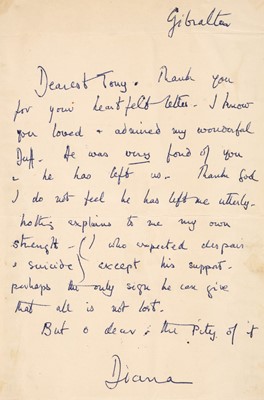 Gibraltar
Dearest Tony. Thank you
for your heartfelt letter. I know
you loved + admired my wonderful
Duff. He was very fond of you
& he has left us. Thank God
I do not feel he has left me utterly.
nothing explains to me my own
strength - (I who expected despair
& suicide) except his support.
perhaps the only sign he can give
that all is not lost.
But o dear, the Pity of it
Diana